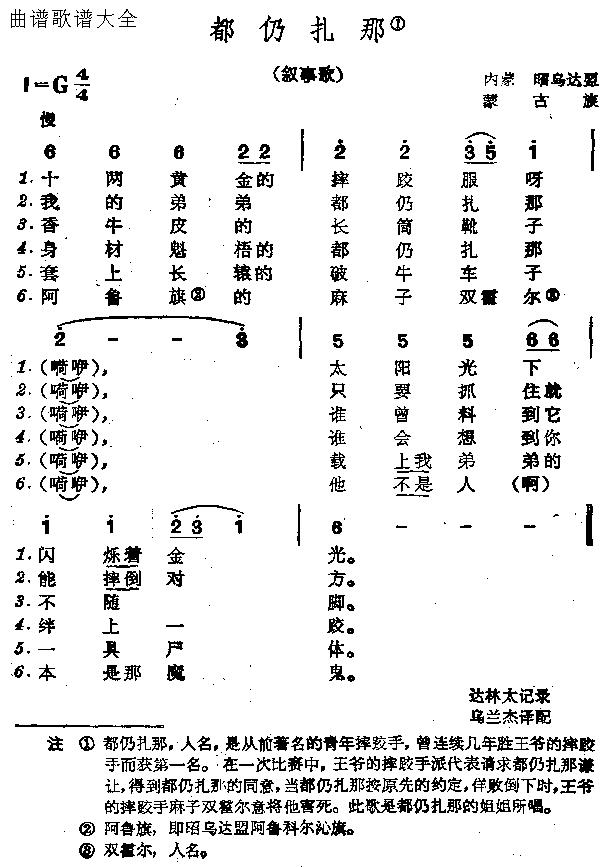 曲谱歌谱大全
都仍扎那①
(叙事歌)
1=G 4/4
内蒙 昭乌达盟
蒙古族
慢
6 6 6 2 2 | 2 2 3 5 1 |
1. 十两黄金的 摔跤服呀
2. 我的弟弟 都仍扎那
3. 香牛皮的 长筒靴子
4. 身材魁梧的 都仍扎那
5. 套上长辕的 破牛车子
6. 阿鲁旗②的 麻子双霍尔③
2 - - 3 | 5 5 5 6 6 |
1. (嗬咿), 太阳光下
2. (嗬咿), 只要抓住就
3. (嗬咿), 谁曾料到它
4. (嗬咿), 谁会想到你
5. (嗬咿), 载上我弟弟的
6. (嗬咿), 他不是人(啊)
1 1 2 3 1 | 6 - - -
1. 闪烁着金光。
2. 能摔倒对方。
3. 不随脚。
4. 绊上一跤。
5. 一具尸体。
6. 本是那魔鬼。
达林太记录
乌兰杰译配
注 ① 都仍扎那,人名,是从前著名的青年摔跤手,曾连续几年胜王爷的摔跤
手而获第一名。在一次比赛中,王爷的摔跤手派代表请求都仍扎那谦
让,得到都仍扎那的同意,当都仍扎那按原先的约定,佯败倒下时,王爷
的摔跤手麻子双霍尔竟将他害死。此歌是都仍扎那的姐姐所唱。
② 阿鲁旗,即昭乌达盟阿鲁科尔沁旗。
③ 双霍尔,人名。